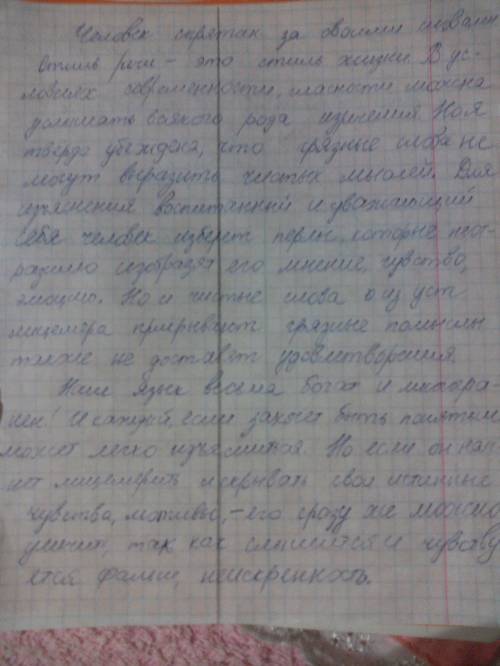 Человек спрятан за своими словами
Стиль речи – это стиль жизни. В ус-
ловиях современности, гласности можно
услышать всякого рода изъяснений. Но я
твердо убеждена, что грязные слова не
могут выразить чистых мыслей. Для
изъяснения воспитанный и уважающий
себя человек изберет перлы, которые
изобразят его мнение, чувство,
эмоцию. Но и чистые слова из уст
лицемера прикрывают грязные помыслы
также не доставят удовлетворения.
Наш язык весьма богат и многогра-
нен! И каждый, если захочет быть понятым
может легко изъясниться. Но если он нач-
нет лицемерить и скрывать свои истинные
чувства, мотивы, – его сразу же можно
уличить, так как слышится и чувству
ется фальшь, неискренность.